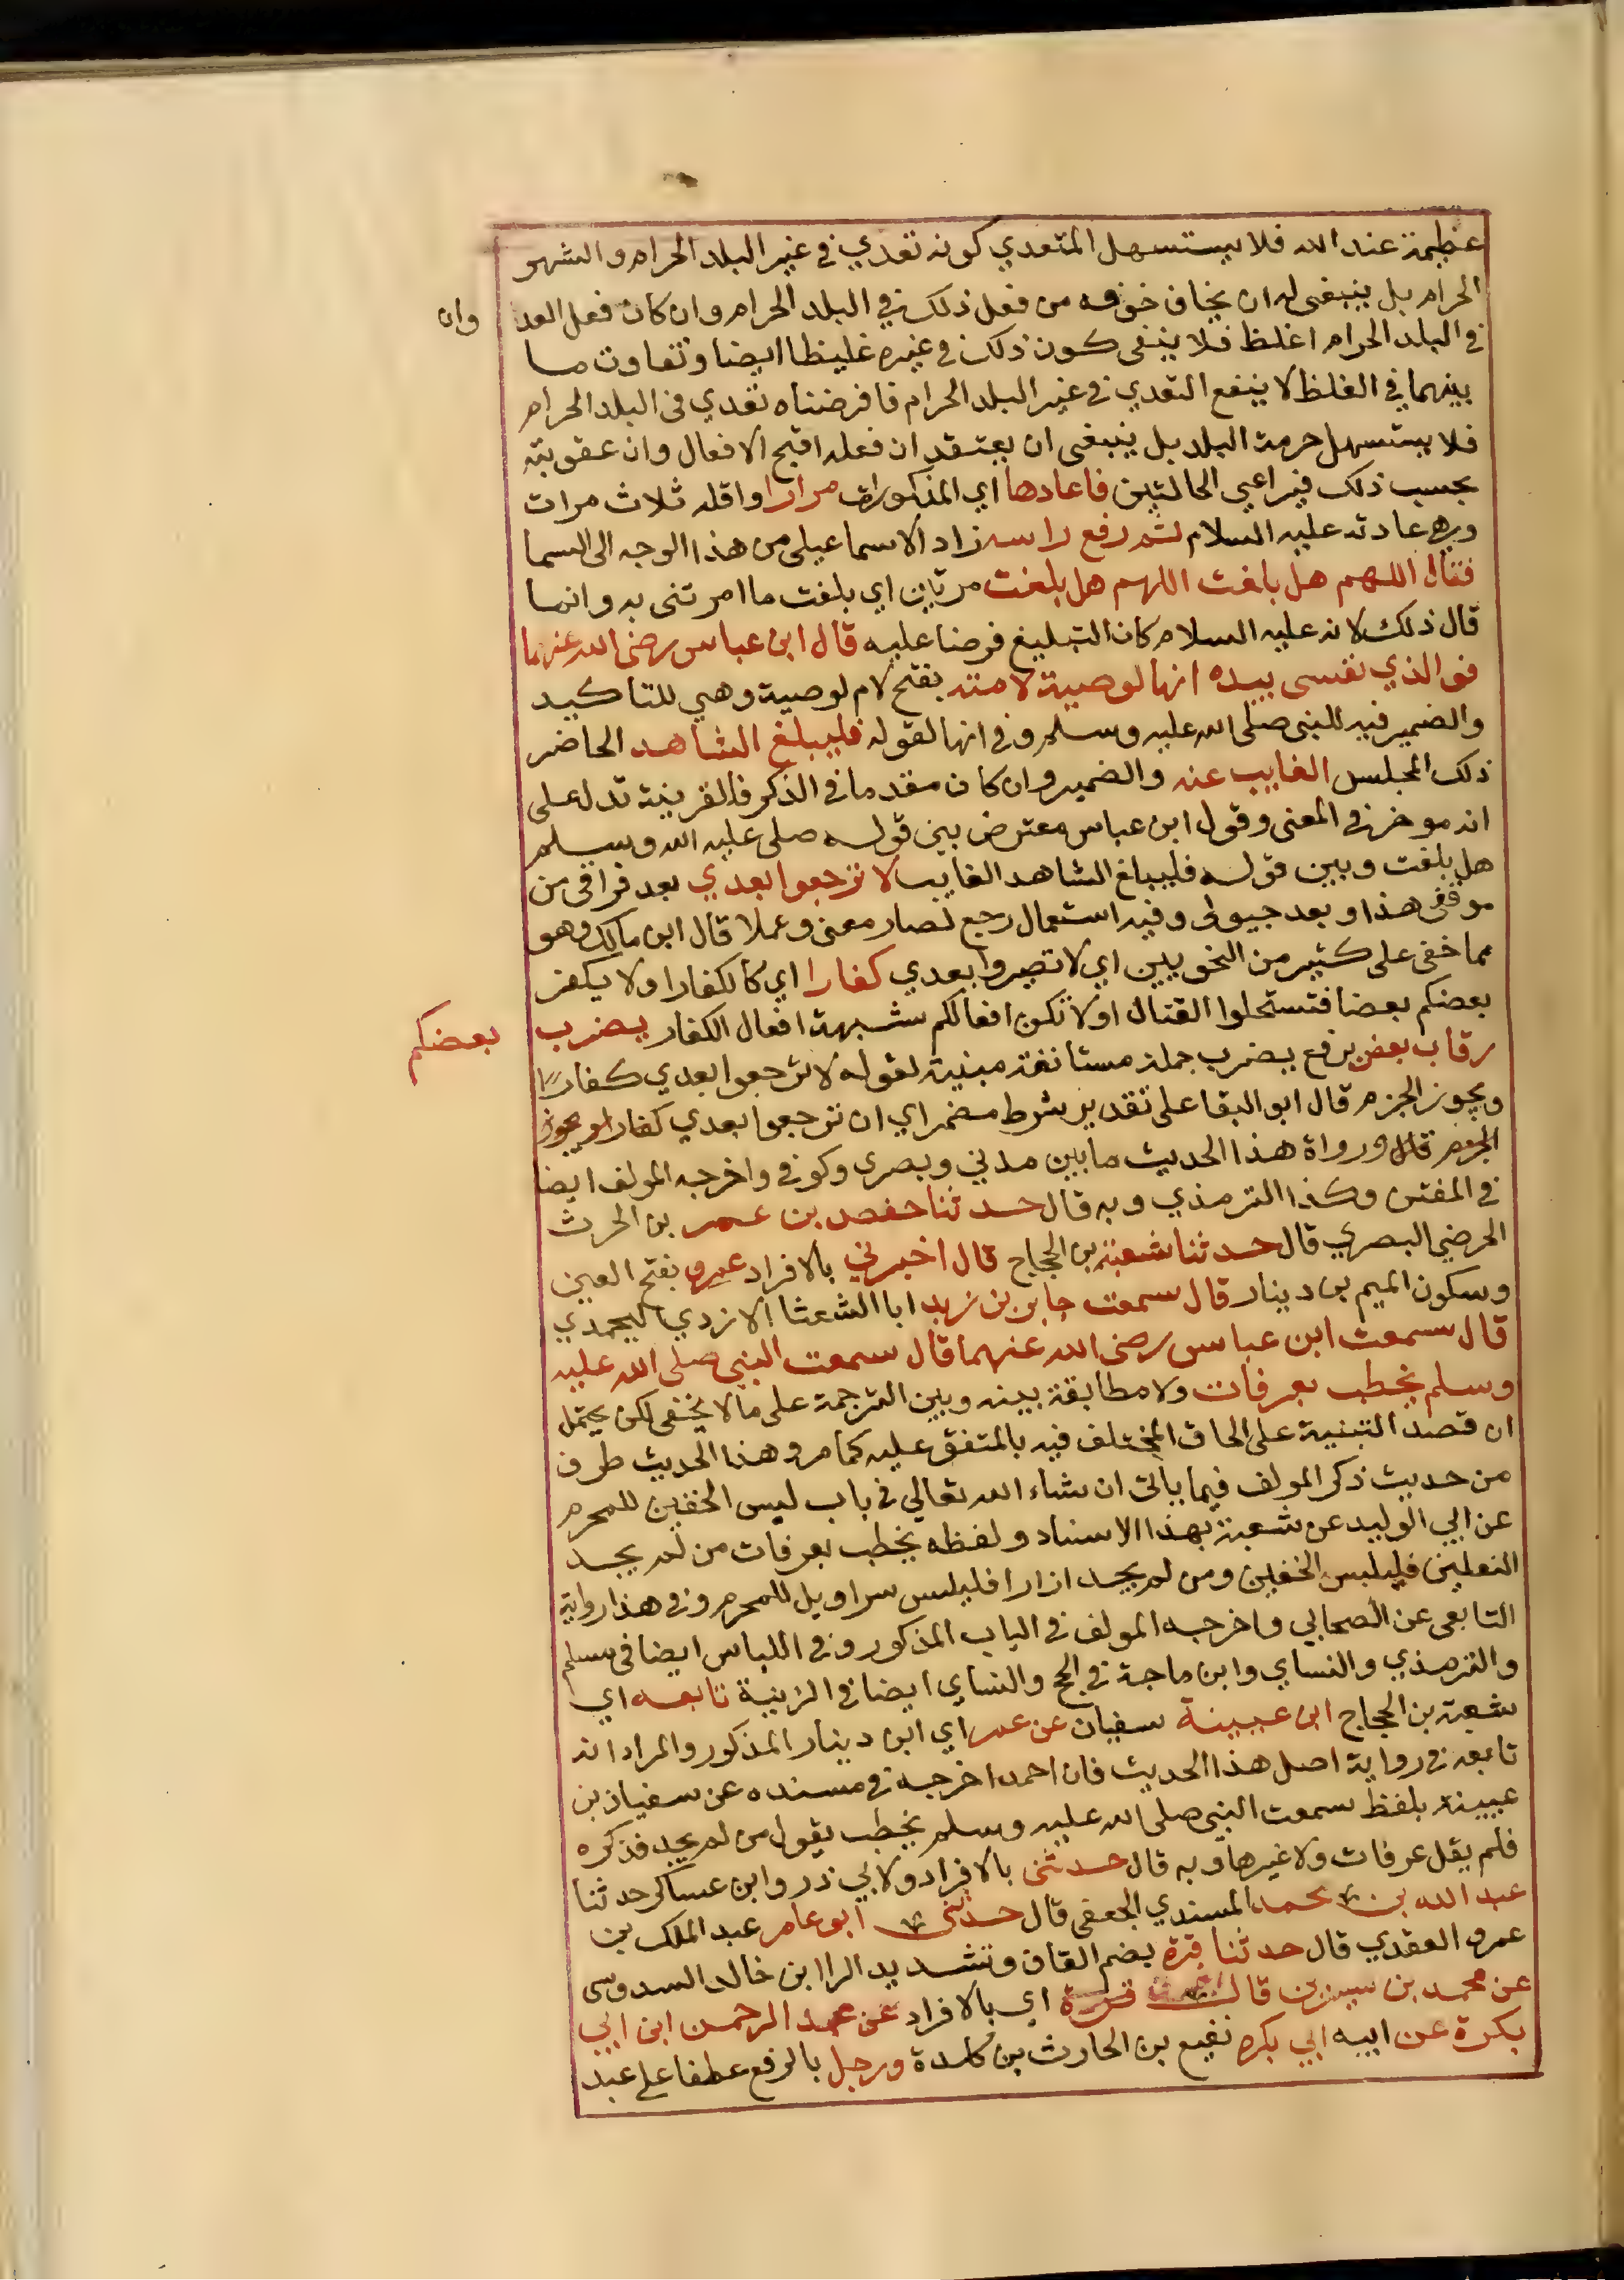 عظيمة عند الله فلا يستسهل المتعدي كونه تعدي في غير البلد الحرام والشهر
الحرام بل ينبغي له ان يخاف خوفه من فعل ذلك في البلد الحرام وان كان فعل العد
وان
في البلد الحرام اغلظ فلا ينفي كون ذلك في غيره غليظا ايضا وتفاوت ما
بينهما في الغلظ لا ينفع التعدي في غير البلد الحرام فا فرضناه تعدي في البلد الحرام
فلا يستسهل حرمة البلد بل ينبغي ان يعتقد ان فعله اقبح الافعال وان عقوبته
بحسب ذلك فيراعي الحالتين فاعادها اي المذكورات مرارا واقله ثلاث مرات
وهي عادته عليه السلام ثم رفع راسه زاد الاسماعيلي من هذا الوجه الى السما
فقال اللهم هل بلغت اللهم هل بلغت مرتين اي بلغت ما امرتني به وانما
قال ذلك لانه عليه السلام كان التبليغ فرضا عليه قال ابن عباس رضي الله عنهما
فوالذي نفسي بيده انها لوصية لامته بفتح لام لوصية وهي للتاكيد
والضمير فيه للنبي صلى الله عليه وسلم وفي انها لقوله فليبلغ الشاهد الحاضر
ذلك المجلس الغايب عنه والضمير وان كان مقدما في الذكر فالقرينة تدل على
انه موخر في المعنى وقول ابن عباس معترض بين قوله صلى عليه الله وسلم
هل بلغت وبين قوله فليبلغ الشاهد الغايب لا ترجعوا بعدي بعد فراقي من
موقفي هذا وبعد حيوتي وفيه استعمال رجع لصار معنى وعملا قال ابن مالك وهو
مما خفي على كثير من النحويين اي لا تصيروا بعدي كفارا اي كالكفار اولا يكفر
بعضكم بعضا فتستحلوا القتال اولا تكن افعالكم شبيهة افعال الكفار يضرب
بعضكم
رقاب بعض برفع يضرب جملة مستانفة مبنية لقوله لا ترجعوا بعدي كفارا
ويجوز الجزم قال ابو البقا على تقدير شرط مضمر اي ان ترجعوا بعدي كفارا ويجوز
الجزم قال ورواة هذا الحديث ما بين مدني وبصري وكوفي واخرجه المولف ايضا
في الفتن وكذا الترمذي وبه قال حدثنا حفص بن عمر بن الحرث
الحرضي البصري قال حدثنا شعبة بن الحجاج قال اخبرني بالافراد عمرو بفتح العين
وسكون الميم بن دينار قال سمعت جابر بن زيد ابا الشعثا الازدي اليحمدي
قال سمعت ابن عباس رضي الله عنهما قال سمعت النبي صلى الله عليه
وسلم يخطب بعرفات ولا مطابقة بينه وبين الترجمة على مالا يخفى لكن يحتمل
ان قصد التنبية على الحاق المختلف فيه بالمتفق عليه كما مر وهذا الحديث طرف
من حديث ذكر المولف فيما ياتي ان شاء الله تعالي في باب لبس الخفين للمحرم
عن ابي الوليد عن شعبة بهذا الاسناد ولفظه يخطب بعرفات من لم يجد
النعلين فليلبس الخفين ومن لم يجد ازارا فليلبس سراويل للمحرم وفي هذا رواية
التابعي عن الصحابي واخرجه المولف في الباب المذكور وفي اللباس ايضا في مسلم
والترمذي والنساي وابن ماجة في الحج والنساي ايضا في الزينة تابعه اي
شعبة بن الحجاج ابن عيينة سفيان عن عمر اي ابن دينار المذكور والمراد انه
تابعه في رواية اصل هذا الحديث فان احمد اخرجه في مسنده عن سفيان بن
عيينة بلفظ سمعت النبي صلى الله عليه وسلم يخطب يقول من لم يجد فذكره
فلم يقل عرفات ولا غيرها وبه قال حدثني بالافراد ولابي ذر وابن عساكر حدثنا
عبد الله بن محمد المسندي الجعفي قال حدثني ابو عامر عبد الملك بن
عمرو العقدي قال حدثنا قرة بضم القاف وتشديد الرا ابن خالد السدوسي
عن محمد بن سيرين قال اي بالافراد عن عبد الرحمن ابن ابي
بكرة عن ابيه ابي بكره نفيع بن الحارث بن كلدة ورجل بالرفع عطفا على عبد